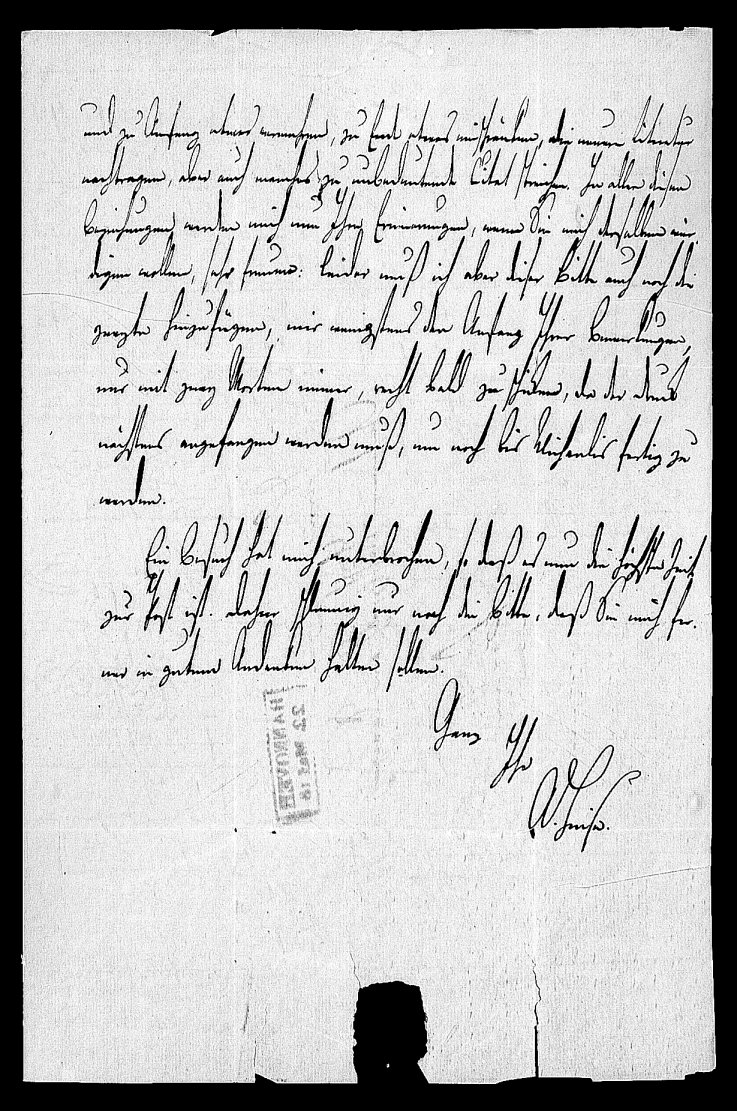 und zu Anfang etwas vermehren, zu Ende etwas einschränken, die neuere Literatur
nachtragen, aber auch manches zu unbedeutende Citat streichen. In allen diesen
Beziehungen werden mich nun Ihre Erinnerungen, wenn Sie mich derselben wür-
digen wollen, sehr freuen: leider muß ich aber dieser Bitte auch noch die
zweyte hinzufügen, mir wenigstens den Anfang Ihrer Bemerkungen,
nur mit zwey Worten immer, recht bald zu schicken, da der Druck
nächstens angefangen werden muß, um noch bis Michaelis fertig zu
werden.
Ein Besuch hat mich unterbrochen, so daß es nun die höchste Zeit
zur Post ist. Daher schleunig nur noch die Bitte, daß Sie mich fer-
ner in gutem Andenken halten sollen.
Ganz
Ihr
HANNOVER
22 MAI 18